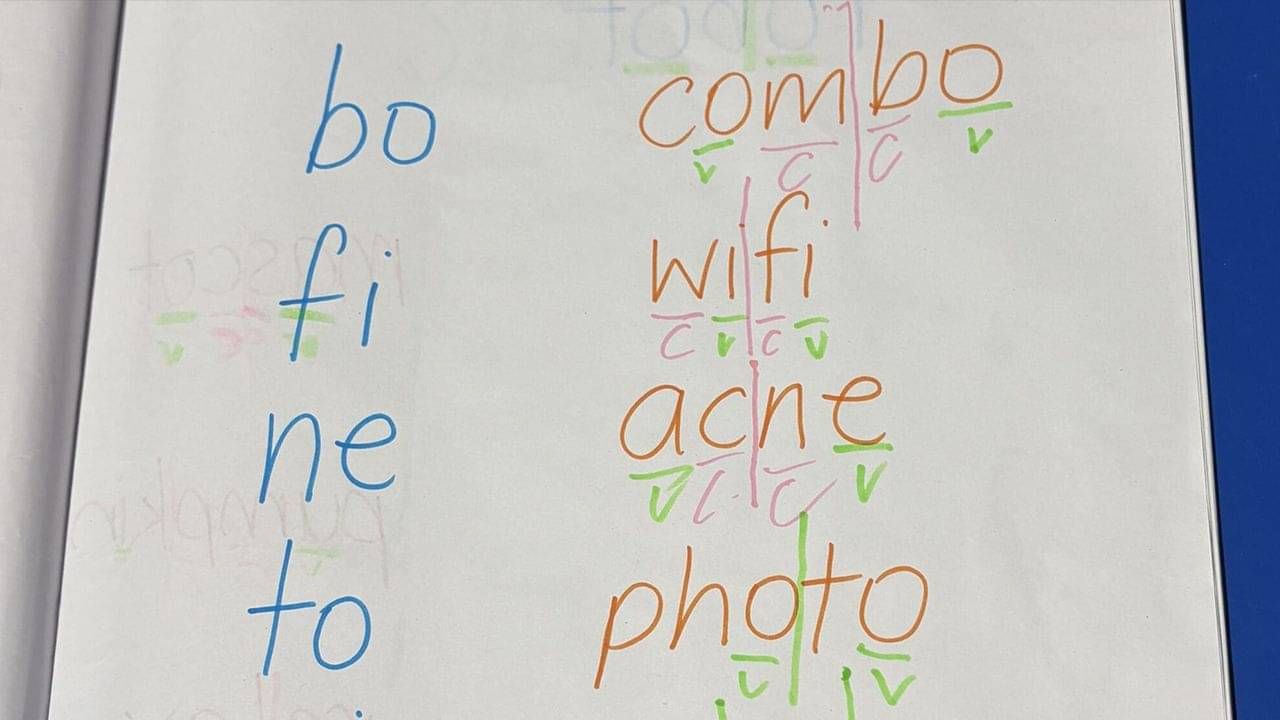 bo combo
v c c v
fi wifi
c v c v
ne acne
v c c v
to photo
v v